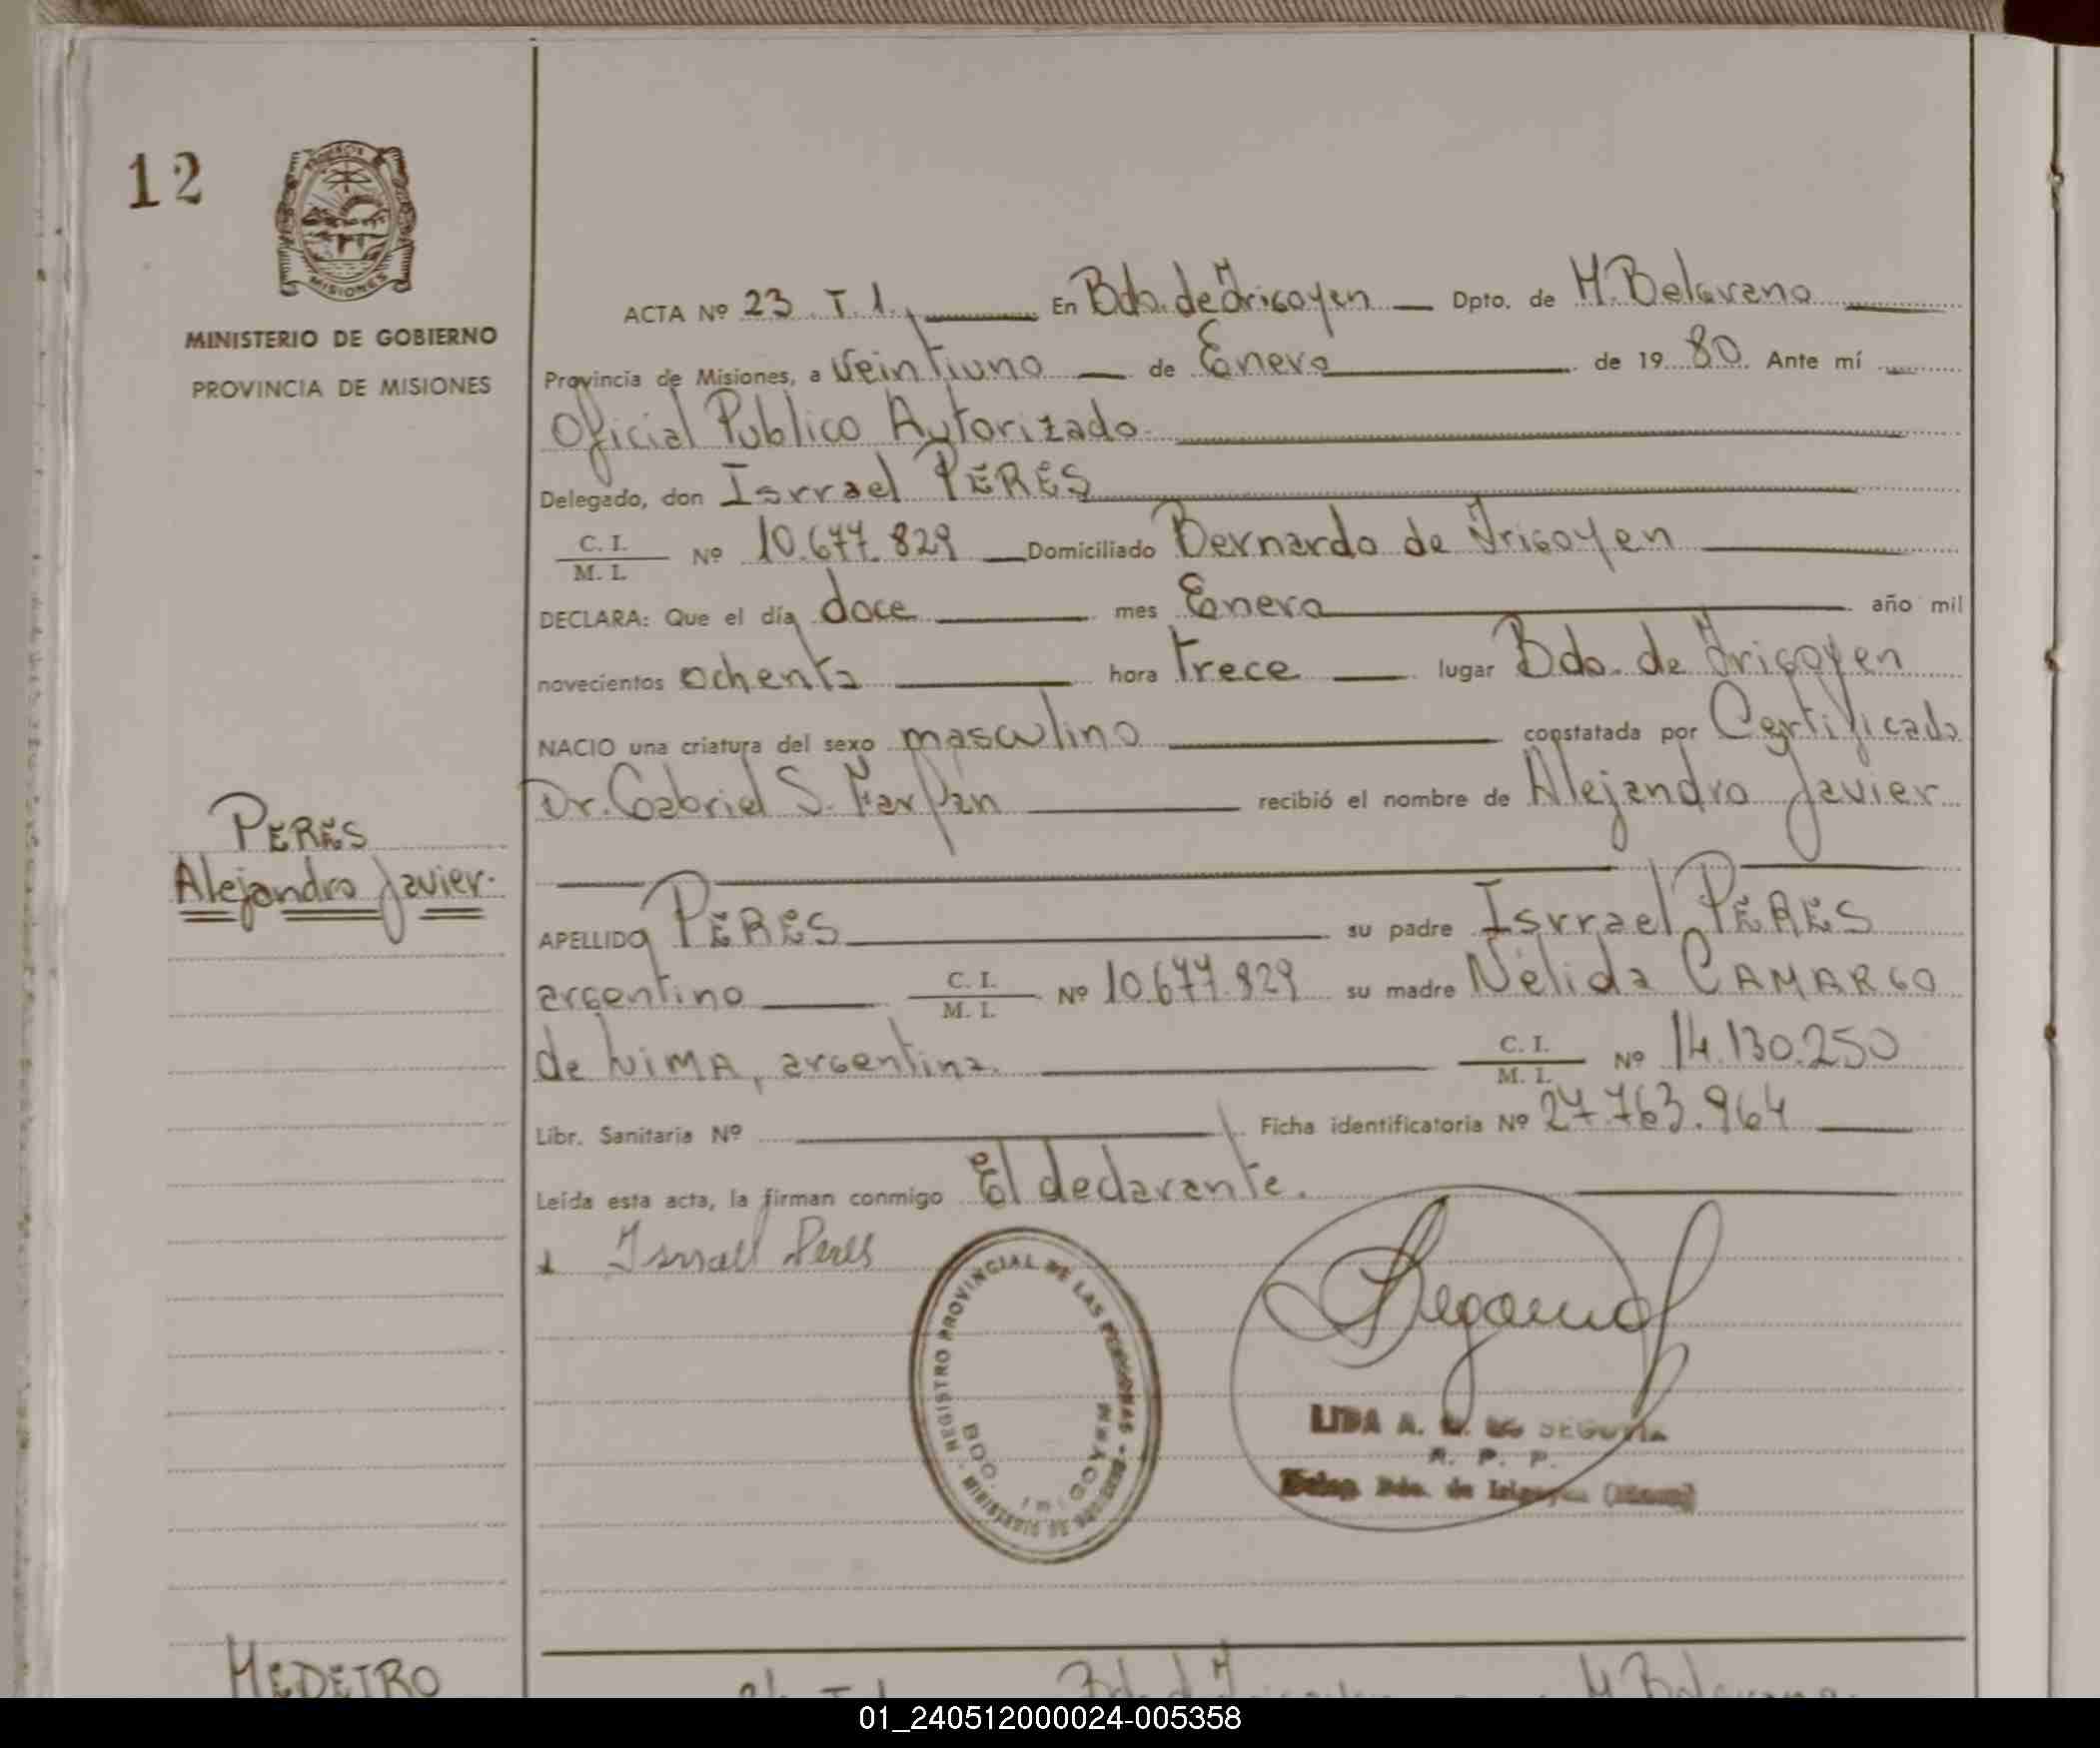 12
MISIONES
MINISTERIO DE GOBIERNO
PROVINCIA DE MISIONES
ACTA Nº 23. T. 1. En Bdo. de Irigoyen Dpto. de M. Belgrano
Provincia de Misiones, a veintiuno de Enero de 19 80. Ante mí
Oficial Público Autorizado.
Delegado, don Isrrael PERES
C. I.
M. I. Nº 10.677.829 Domiciliado Bernardo de Irigoyen
DECLARA: Que el día doce mes Enero año mil
novecientos ochenta hora trece lugar Bdo. de Irigoyen
NACIO una criatura del sexo masculino constatada por Certificado
Dr. Gabriel S. Farfán recibió el nombre de Alejandro Javier
PERES
Alejandro Javier.
APELLIDO PERES su padre Isrrael PERES
argentino C. I.
M. I. Nº 10.677.829 su madre Nélida CAMARGO
de LIMA, argentina. C. I.
M. I. Nº 14.130.250
Libr. Sanitaria Nº Ficha identificatoria Nº 27.763.964
Leída esta acta, la firman conmigo El declarante.
Isrrael Peres
REGISTRO PROVINCIAL DE LAS PERSONAS
BDO. IRIGOYEN
LIDA A. SEGOVIA
R. P. P.
Deleg. Bdo. de Irigoyen (Mnes)
MEDEIRO
01_240512000024-005358